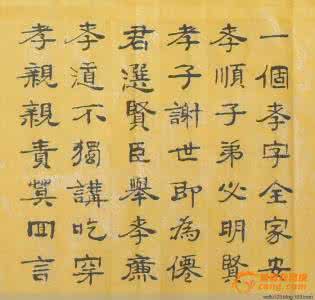 一個孝字全家安
孝順子弟必明賢
孝子謝世即為僊
君選賢臣舉孝廉
孝道不獨講吃穿
孝親親責莫回言